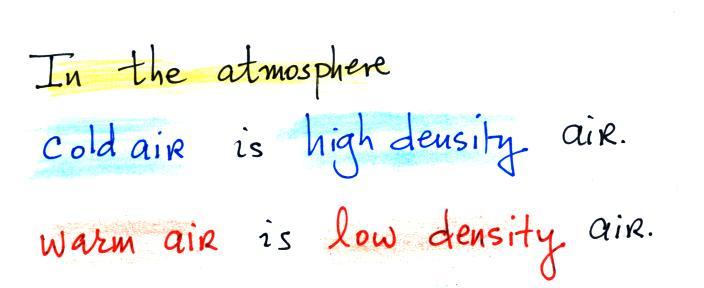 In the atmosphere
cold air is high density air.
warm air is low density air.